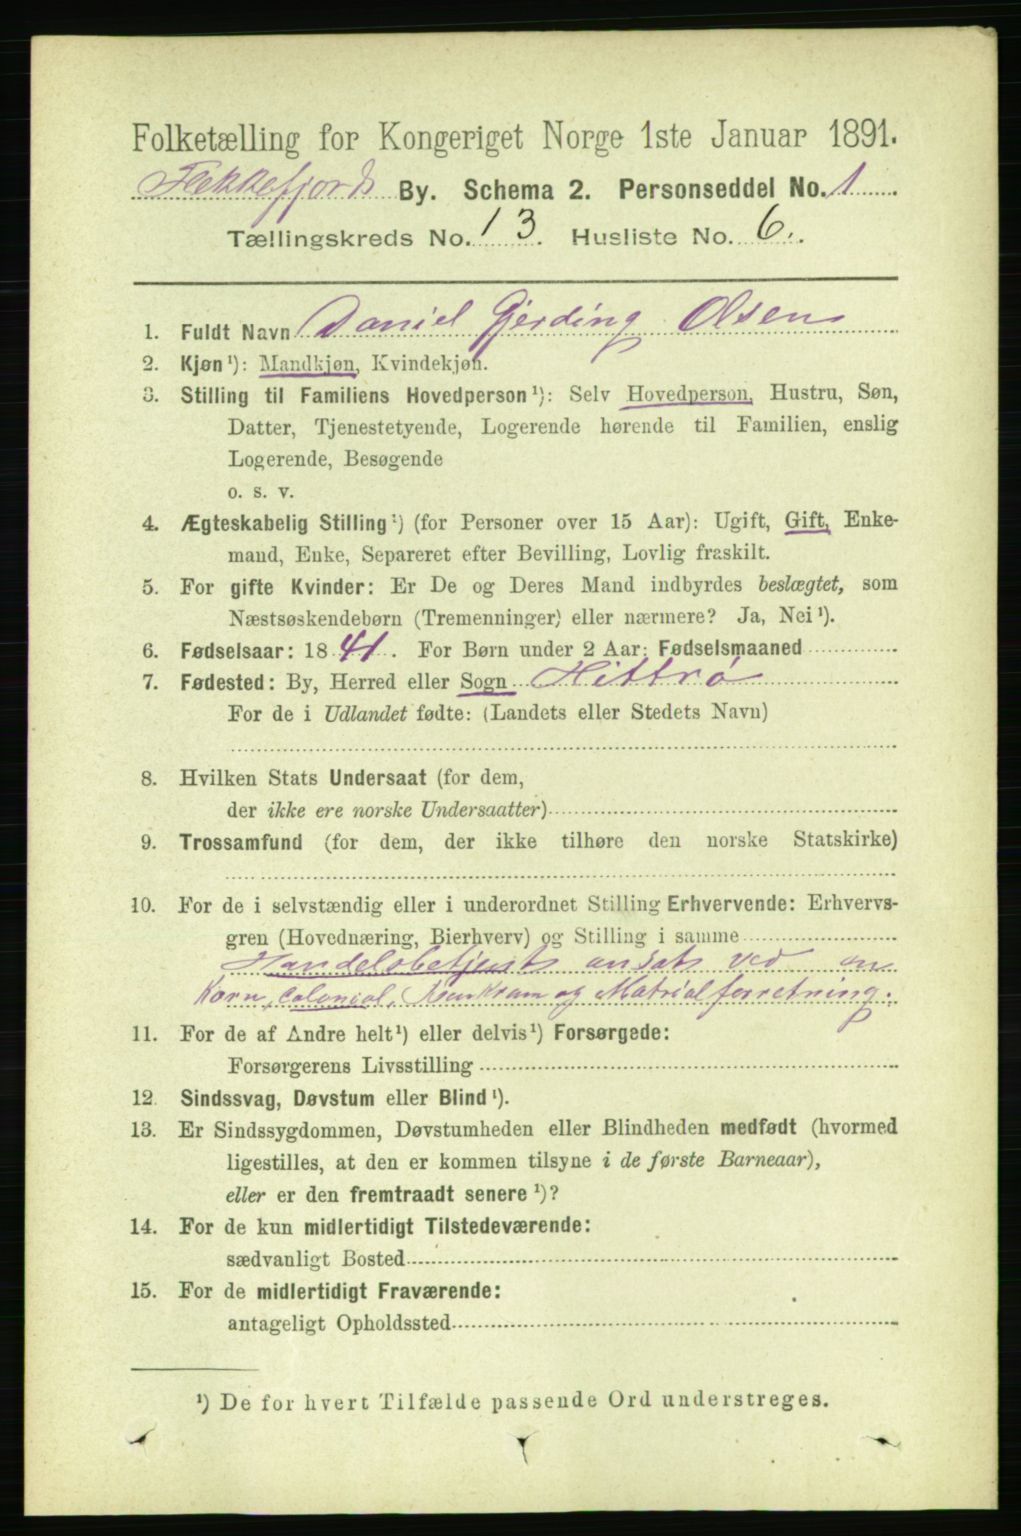 Folketælling for Kongeriget Norge 1ste Januar 1891.
Flekkefjords By. Schema 2. Personseddel No. 1
Tællingskreds No. 13. Husliste No. 6.
1. Fuldt Navn Daniel Gjerding Olsen
2. Kjøn ¹): Mandkjøn, Kvindekjøn.
3. Stilling til Familiens Hovedperson ¹): Selv Hovedperson, Hustru, Søn,
Datter, Tjenestetyende, Logerende hørende til Familien, enslig
Logerende, Besøgende
o. s. v.
4. Ægteskabelig Stilling ¹) (for Personer over 15 Aar): Ugift, Gift, Enke-
mand, Enke, Separeret efter Bevilling, Lovlig fraskilt.
5. For gifte Kvinder: Er De og Deres Mand indbyrdes beslægtet, som
Næstsøskendebørn (Tremenninger) eller nærmere? Ja, Nei ¹).
6. Fødselsaar: 1841. For Børn under 2 Aar: Fødselsmaaned
7. Fødested: By, Herred eller Sogn Hittrø
For de i Udlandet fødte: (Landets eller Stedets Navn)
8. Hvilken Stats Undersaat (for dem,
der ikke ere norske Undersaatter)
9. Trossamfund (for dem, der ikke tilhøre den norske Statskirke)
10. For de i selvstændig eller i underordnet Stilling Erhvervende: Erhvervs-
gren (Hovednæring, Bierhverv) og Stilling i samme
Handelsbetjent ansat ved en
Korn, Colonial, Isenkram og Matrialforretning.
11. For de af Andre helt ¹) eller delvis ¹) Forsørgede:
Forsørgerens Livsstilling
12. Sindssvag, Døvstum eller Blind ¹).
13. Er Sindssygdommen, Døvstumheden eller Blindheden medfødt (hvormed
ligestilles, at den er kommen tilsyne i de første Barneaar),
eller er den fremtraadt senere ¹)?
14. For de kun midlertidigt Tilstedeværende:
sædvanligt Bosted
15. For de midlertidigt Fraværende:
antageligt Opholdssted
¹) De for hvert Tilfælde passende Ord understreges.